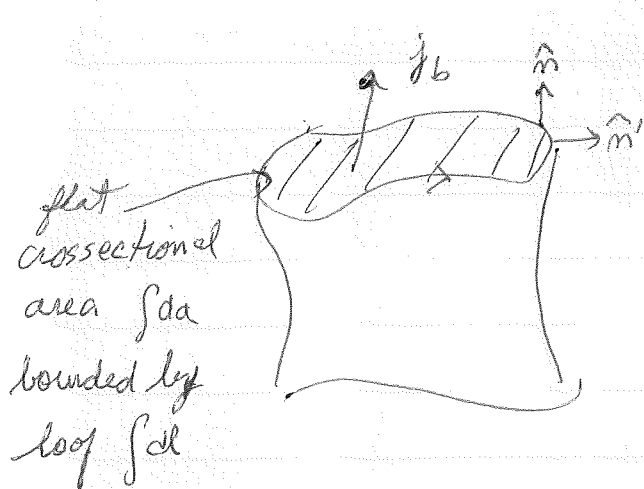 j_b
n̂
n̂'
flat
crossectional
area ∫da
bounded by
loop ∫dl